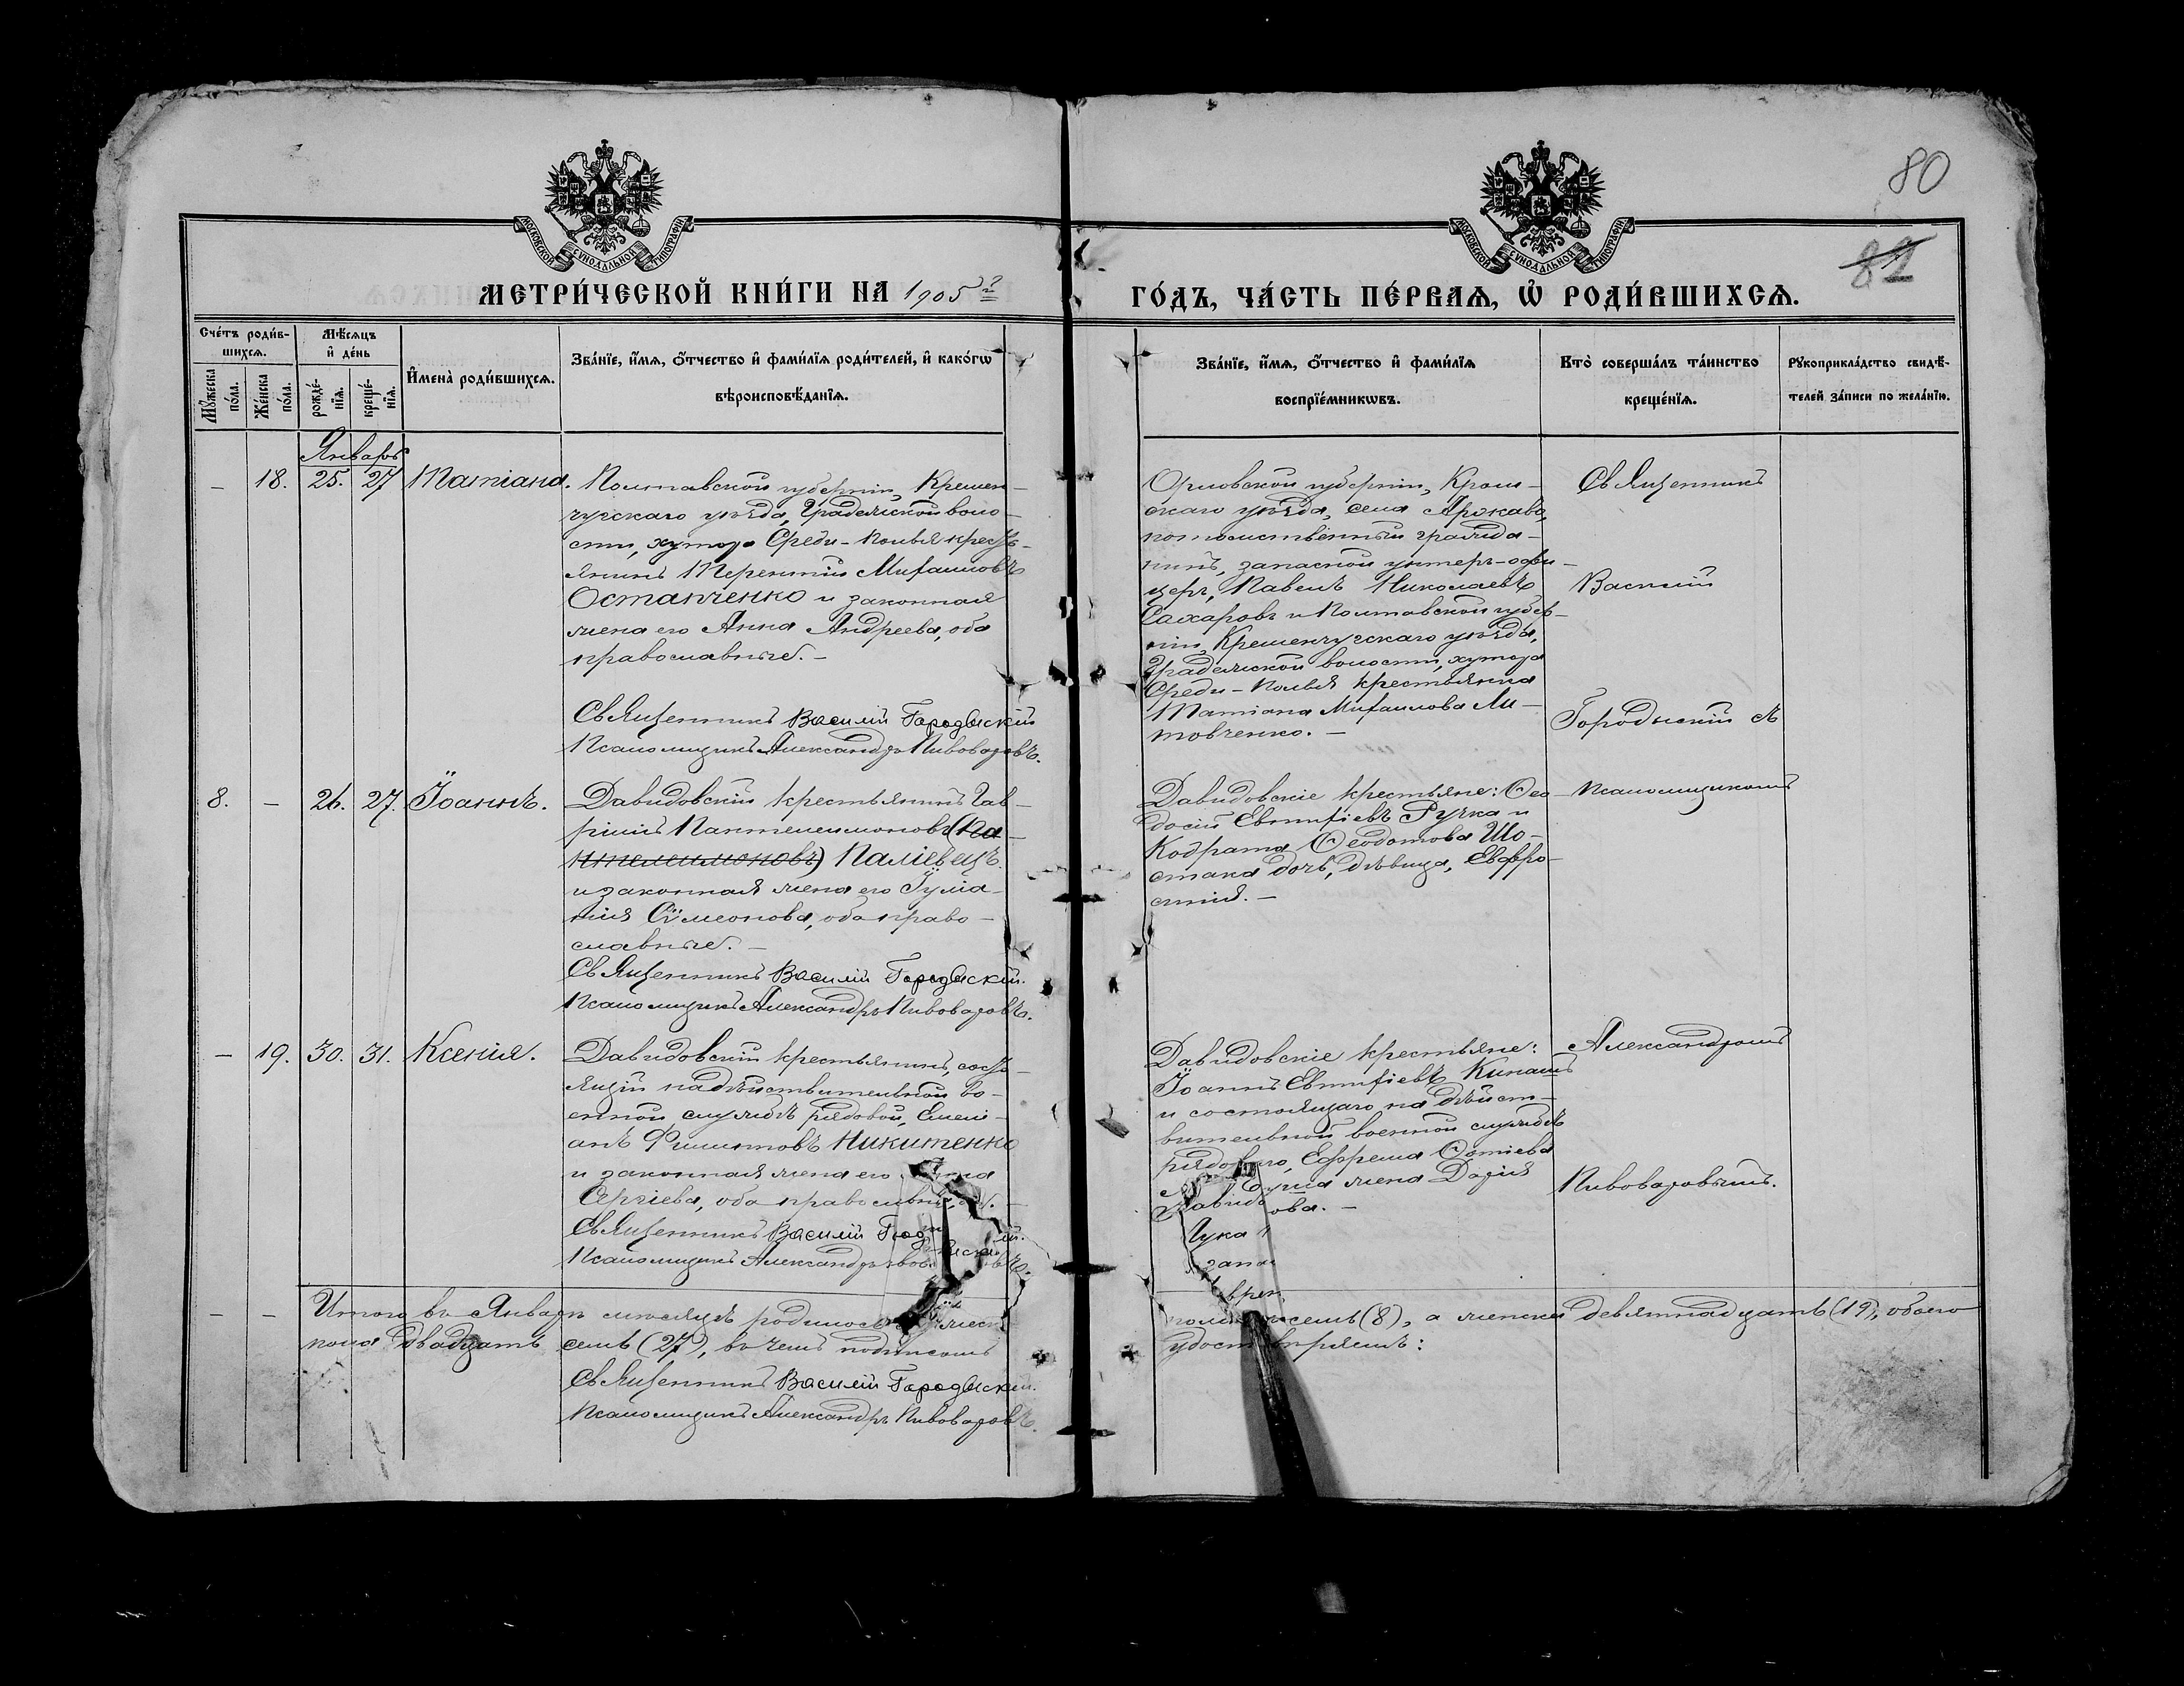 80
82
МОСКОВСКОЙ СѴНОДАЛЬНОЙ ТИПОГРАФІИ
МОСКОВСКОЙ СѴНОДАЛЬНОЙ ТИПОГРАФІИ
МЕТРИ́ЧЕСКОЙ КНИ́ГИ НА 1905 г.
ГО́ДЪ, ЧА́СТЬ ПЕ́РВАѦ, Ѡ҆ РОДИ́ВШИХСѦ.
Сче́тъ роди́в-
шихсѧ.
Мꙋ́жеска по́ла.
Же́нска по́ла.
Мѣ́сѧцъ
и҆ де́нь
рожде́-
нїѧ.
креще́-
нїѧ.
И҆мена̀ роди́вшихсѧ.
Зва́нїе, и҆́мѧ, ѻ҆́тчество и҆ фами́лїѧ роди́телей, и҆ како́гѡ
вѣроисповѣ́данїѧ.
Зва́нїе, и҆́мѧ, ѻ҆́тчество и҆ фами́лїѧ
воспрїе́мникѡвъ.
Кто̀ соверша́лъ та́инство
креще́нїѧ.
Рꙋкоприкла́дство свидѣ́-
телей за́писи по жела́нїю.
Январь
– 18. 25. 27 Татіана.
Полтавской губерніи, Кремен-
чугскаго уѣзда, Градижской воло-
сти, хутора Среди-Полья кресть-
янинъ Терентій Михаиловъ
Остапченко и законная
жена его Анна Андреева, оба
православные. –
Священникъ Василій Городыскій
Псаломщикъ Александръ Пивоваровъ.
Орловской губерніи, Кром-
скаго уѣзда, села
потомственный гражда-
нинъ, запасной унтеръ-офи-
церъ, Павелъ Николаевъ
Сахаровъ и Полтавской губер-
ніи, Кременчугскаго уѣзда,
Градижской волости, хутора
Среди-Полья крестьянка
Татіана Михаилова Ли-
товченко. –
Священникъ
Василій
Городыскій съ
псаломщикомъ
Александромъ
Пивоваровымъ.
8. – 26. 27. Іоаннъ.
Давидовскій крестьянинъ Гав-
ріилъ Пантелеимоновъ (Па-
нтелеимоновъ) Паліевецъ
и законная жена его Іуліа-
нія Сѵмеонова, оба право-
славные. –
Священникъ Василій Городыскій.
Псаломщикъ Александръ Пивоваровъ.
Давидовскіе крестьяне: Ѳео-
досій Евтихіевъ Ручка и
Кодрата Ѳеодотова Шо-
стака дочь, дѣвица, Евфро-
синія. –
– 19. 30. 31. Ксенія.
Давидовскій крестьянинъ, состо-
ящій на дѣйствительной во-
енной службѣ рядовой, Емелі-
анъ Филипповъ Никитенко
и законная жена его
Сергіева, оба православные. –
Священникъ Василій
Псаломщикъ Александръ
Давидовскіе крестьяне:
Іоаннъ Евтихіевъ Кинашъ
и состоящаго на дѣйст-
вительной военной службѣ
рядового, Ефрема Ѳотіева
жена Дарія
– – Итого въ Январѣ мѣсяцѣ родилось мужеска
пола восемь (8), а женска девятнадцать (19), обоего
пола двадцать семь (27), въ чемъ подписомъ
удостовѣряемъ:
Священникъ Василій Городыскій.
Псаломщикъ Александръ Пивоваровъ.